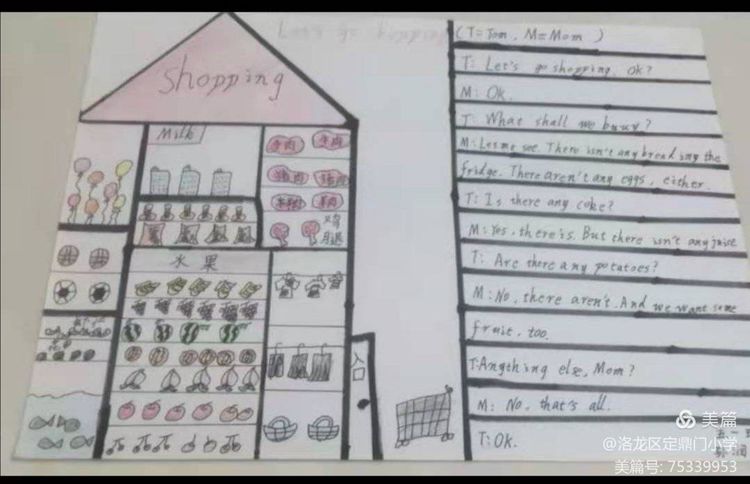 Let's go shopping
Shopping
Milk
牛肉
牛肉
猪肉
猪肉
羊肉
羊肉
鸡腿
水果
入口
(T=Tom, M=Mom)
T: Let's go shopping, ok?
M: OK.
T: What shall we buuy?
M: Let me see. There isn't any bread in the
fridge. There aren't any eggs, either.
T: Is there any coke?
M: Yes, there is. But there isn't any juice
T: Are there any potatoes?
M: No, there aren't. And we want some
fruit, too.
T: Angthing else, Mom?
M: No, that's all.
T: OK.
美篇
@洛龙区定鼎门小学
美篇号: 75339953